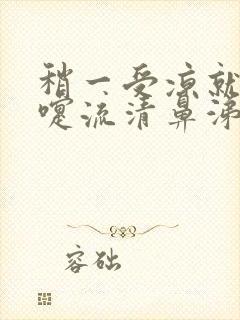 稍一受凉就
嚏流清鼻涕
容础